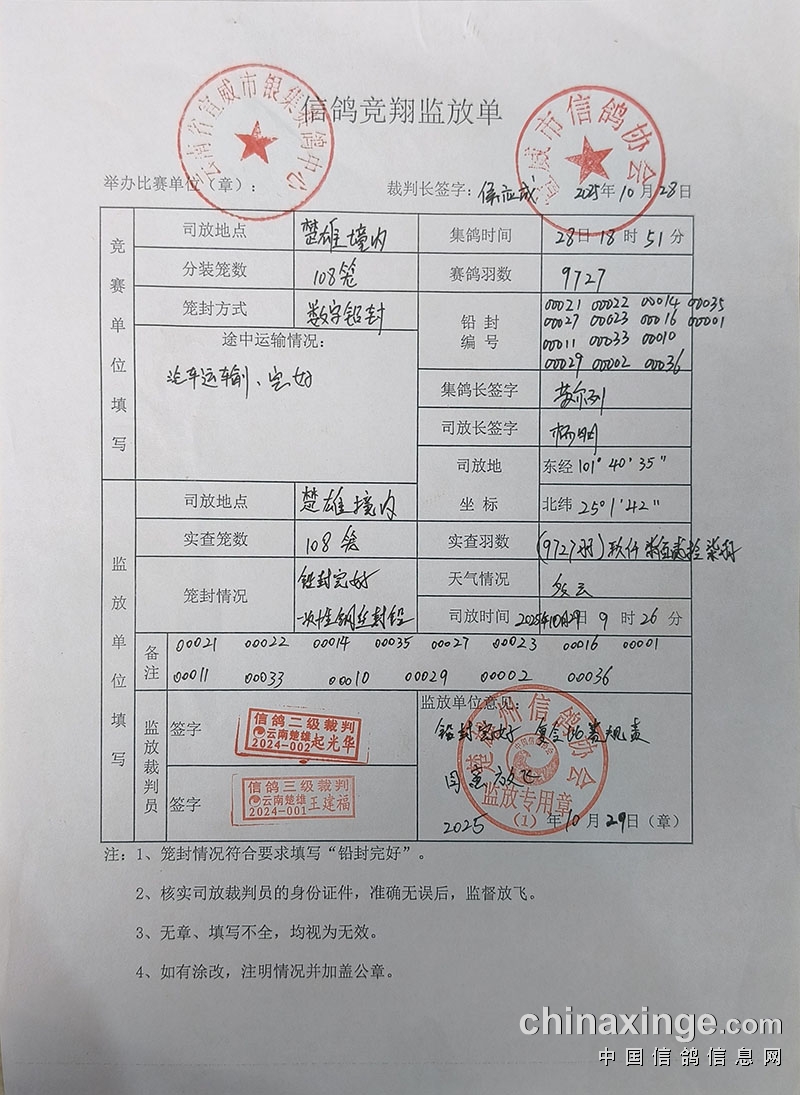 信鸽竞翔监放单
云南省宣威市银集赛鸽中心
宣威市信鸽协会
举办比赛单位（章）：
裁判长签字： 2025年10月28日
竞赛单位填写
司放地点 楚雄境内 集鸽时间 28日18时51分
分装笼数 108笼 赛鸽羽数 9727
笼封方式 数字铅封 铅封编号
00021 00022 00014 00035
00027 00023 00016 00001
00011 00033 00010
00029 00002 00036
途中运输情况：
汽车运输、完好
集鸽长签字
司放长签字 杨明
司放地坐标 东经101°40'35"
北纬25°1'42"
监放单位填写
司放地点 楚雄境内
实查笼数 108笼 实查羽数 (9727羽)玖仟柒佰贰拾柒羽
笼封情况 铅封完好 天气情况 多云
一次性钢丝封铅 司放时间 2025年10月29日9时26分
备注 00021 00022 00014 00035 00027 00023 00016 00001
00011 00033 00010 00029 00002 00036
监放裁判员
签字 信鸽二级裁判
云南楚雄
2024-002 起光华
签字 信鸽三级裁判
云南楚雄
2024-001 王建福
监放单位意见：
铅封完好 复合比赛规责
同意放飞
楚雄州信鸽协会
监放专用章
(1)
2025年10月29日（章）
注：1、笼封情况符合要求填写“铅封完好”。
2、核实司放裁判员的身份证件，准确无误后，监督放飞。
3、无章、填写不全，均视为无效。
4、如有涂改，注明情况并加盖公章。
chinaxinge.com
中国信鸽信息网